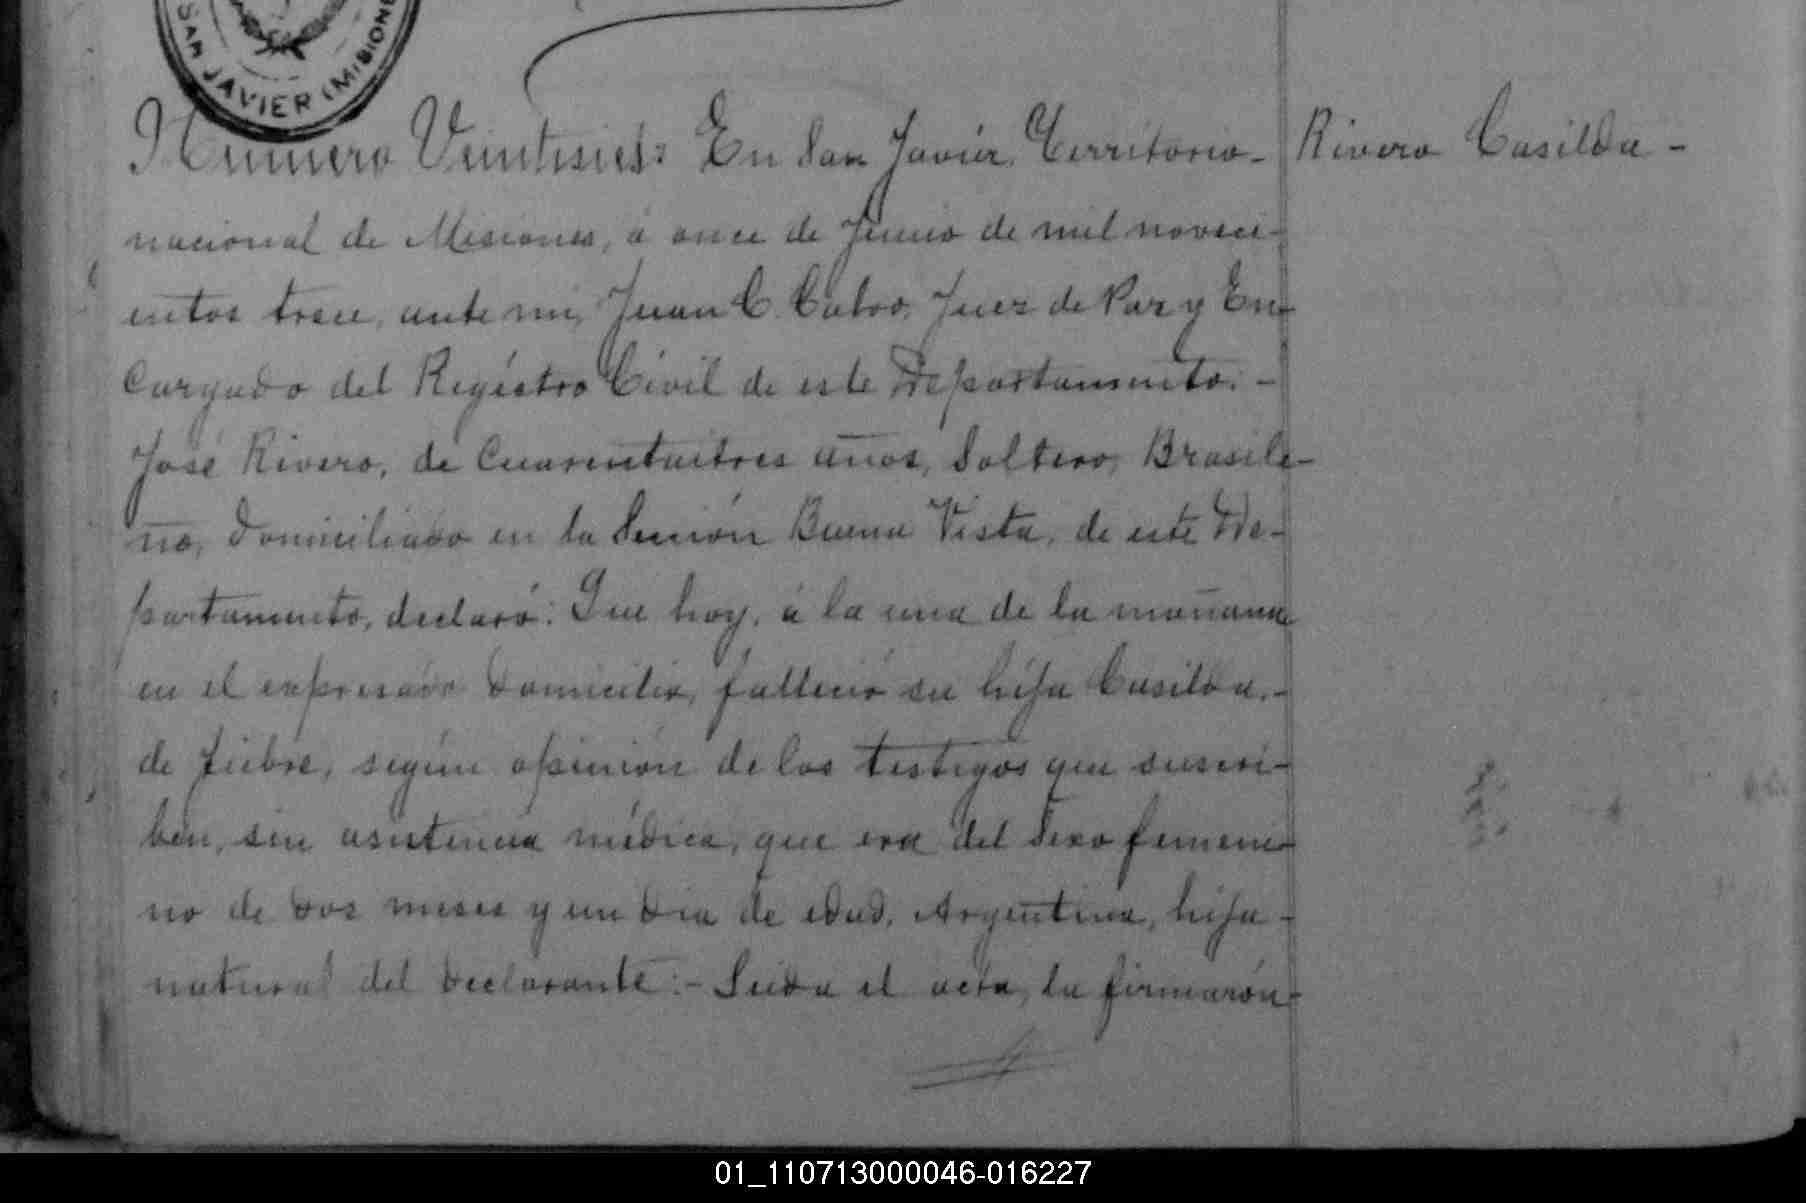 SAN JAVIER (MISIONE
Número Veintiseis: En San Javiér, Território- Rivero Casilda -
nacional de Misiones, á once de Junio de mil noveci-
entos trece, ante mi, Juan C. Calvo, Juez de Paz y En-
cargado del Regístro Cívil de este Departamento. -
José Rivero, de Cuarentaitres años, Soltero, Brasile-
ño, domiciliado en la Sección Buena Vista, de este De-
partamento, declaró: Que hoy, á la una de la mañana
en el expresado domicilio, falleció su hija Casilda, -
de fiebre, según opinión de los testigos que suscri-
ben, sin asistencia médica, que era del Sexo femeni-
no de dos meses y un dia de edad, Argentina, hija -
natural del declarante: - Leida el acta, la firmarón -
01_110713000046-016227